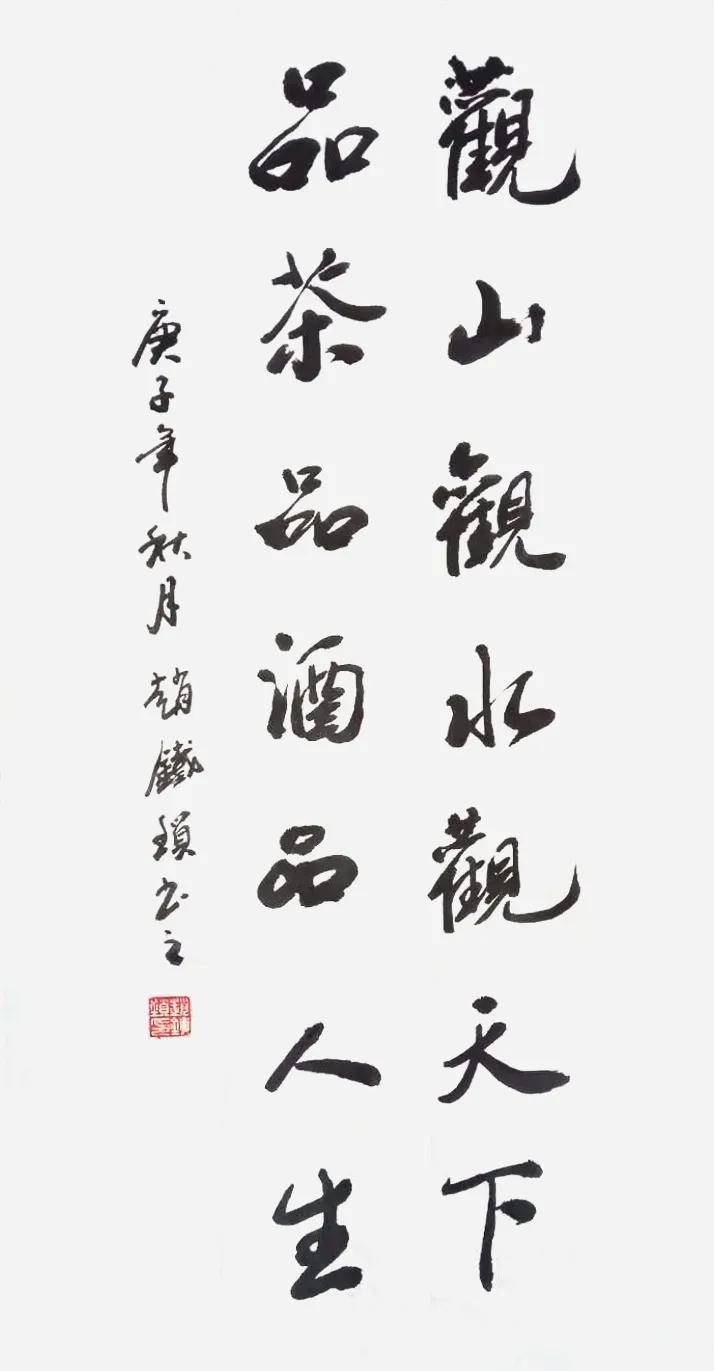 觀山觀水觀天下
品茶品酒品人生
庚子年秋月 趙鐵鎖書之